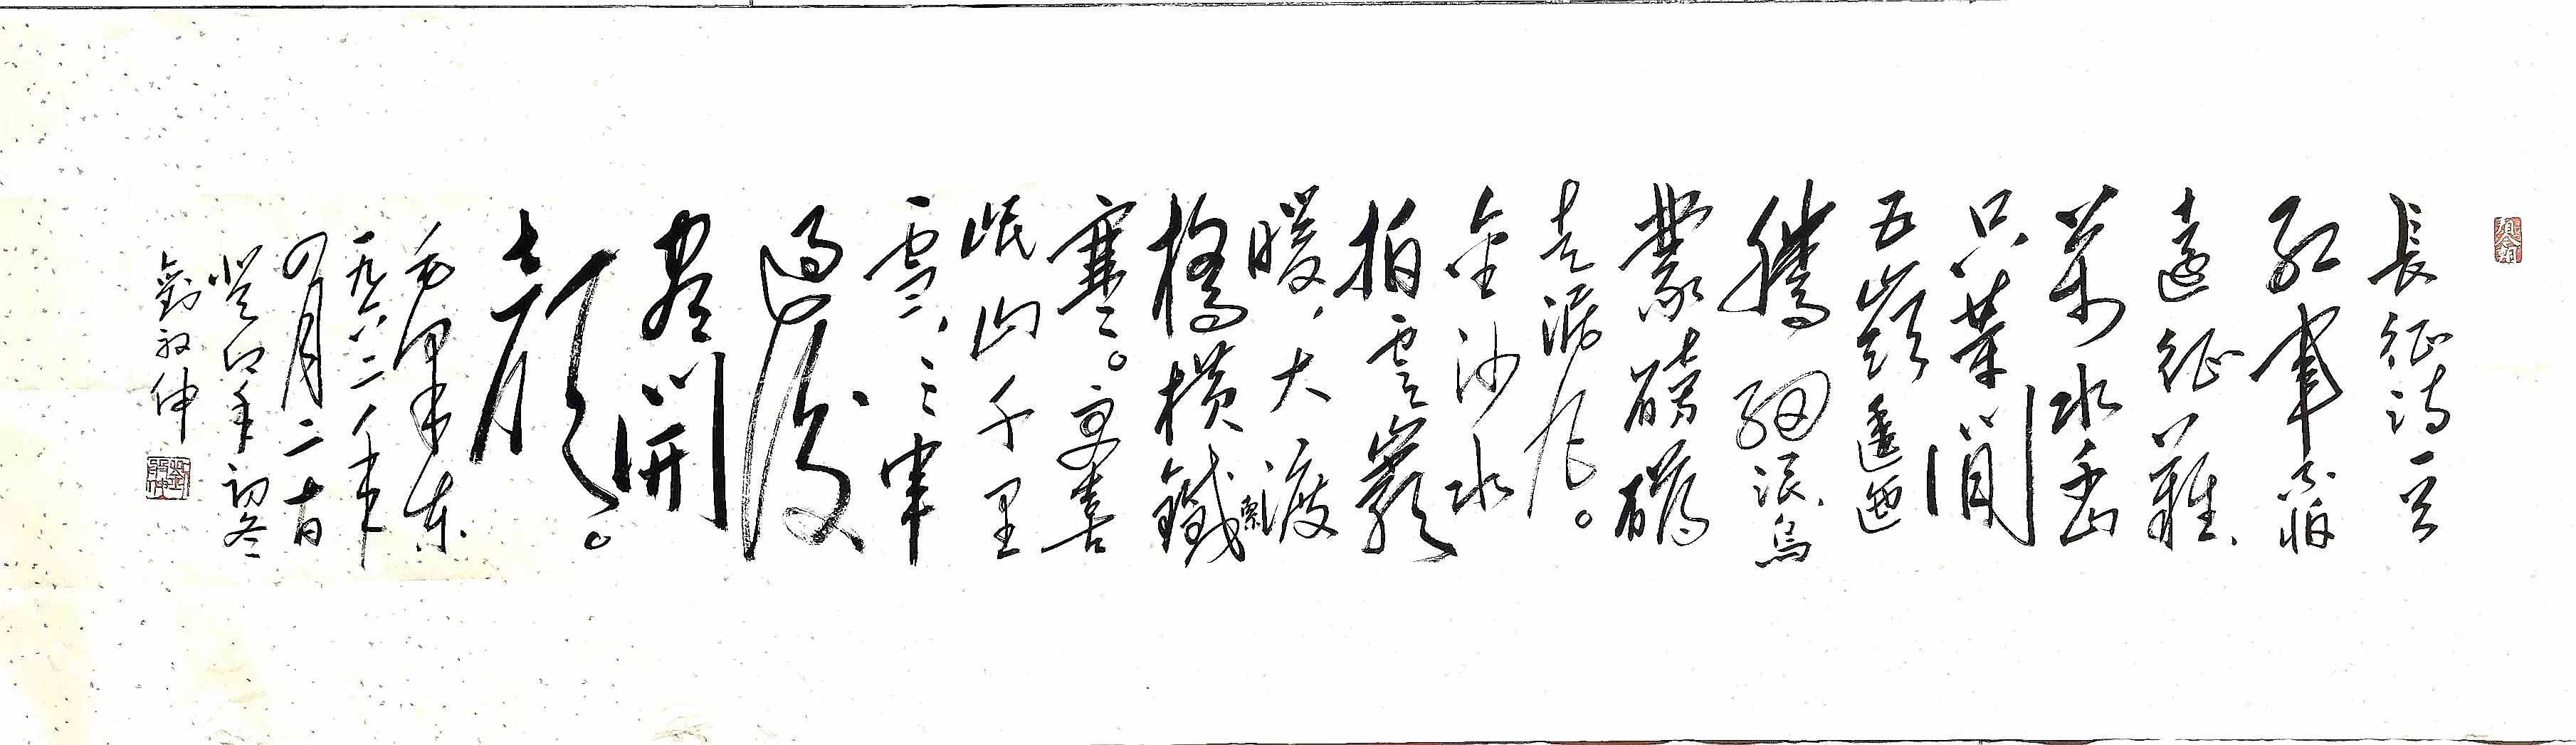 長征詩一首
红軍不怕
遠征難,
萬水千山
只等閒
五嶺逶迤
騰細浪,烏
蒙磅礴
走泥丸。
金沙水
拍雲巖
暖,大渡
橋橫鐵索
寒。更喜
岷山千里
雪,三軍
過後
盡開
顏。
毛澤東
一九六二年
四月二十日
癸卯年初冬
劉 伸